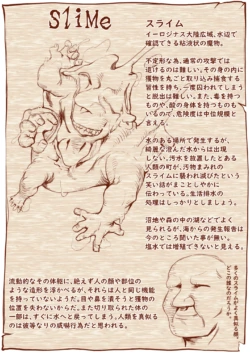 SliMe
スライム
イーロジナス大陸広域、水辺で
確認できる粘液状の魔物。
不定形な為、通常の攻撃では
退けるのは難しい。その身の内に
獲物を丸ごと取り込み捕食する
習性を持ち、一度囚われてしまう
と脱出は難しい。また、毒を持つ
ものや、酸の身体を持つものも
いるので、危険度は中位規模と
言える。
水のある場所で発生するが、
綺麗な澄んだ水からは出現
しない。汚水を放置したとある
人類の町が、汚物まみれの
スライムに襲われ滅びたという
笑い話がまことしやかに
伝わっている。生活排水の
処理はしっかりとしましょう。
沼地や森の中の湖などでよく
見られるが、海からの発生報告は
今のところ聞いた事が無い。
塩水では増殖できないと見える。
流動的なその体躯に、絶えず人の顔や部位の
ような造形を浮かべるが、それらは人と同じ機能
を持っていないようだ。目や鼻を潰そうと獲物の
位置を失わないからだ。また切り取られた体の
一部は、すぐに水へと戻ってしまう。人間を真似る
のは彼等なりの威嚇行為だと思われる。
多くのスライムがよく真似る顔。
この顔は誰なのだろうか…